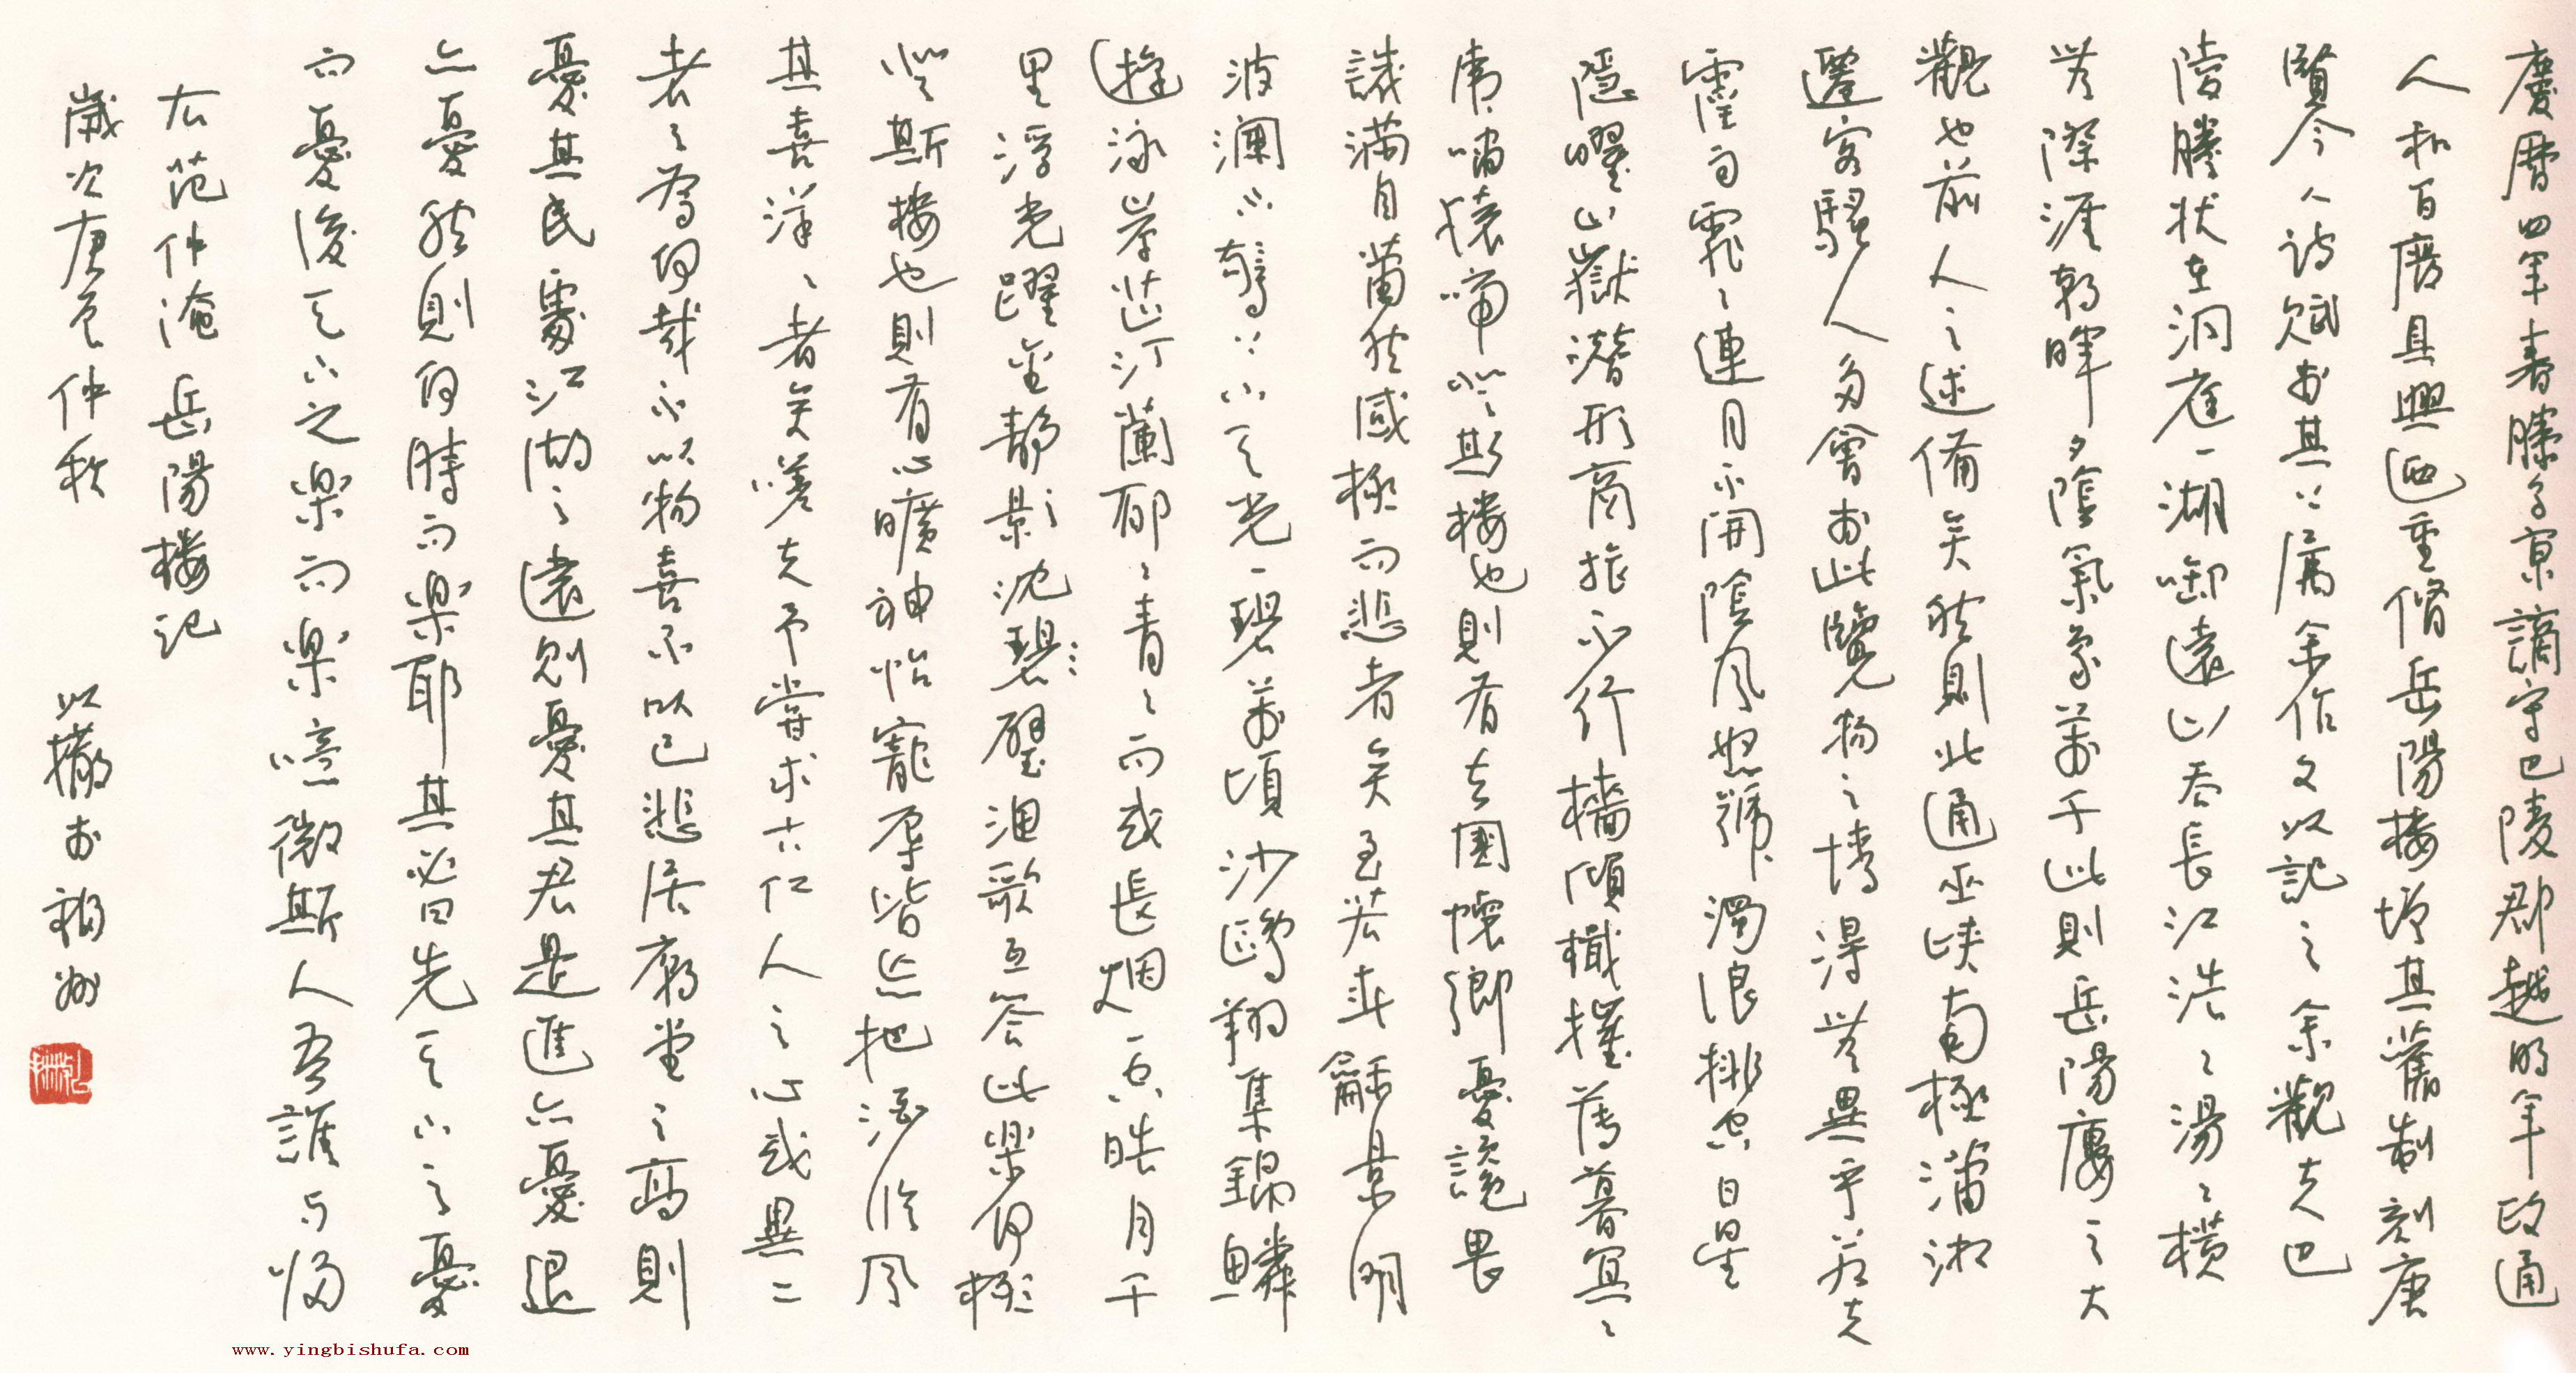 慶曆四年春滕子京謫守巴陵郡越明年政通
人和百廢具興迺重脩岳陽楼增其舊制刻唐
賢今人詩賦於其上屬余作文以記之余觀夫巴
陵勝狀在洞庭一湖銜遠山吞長江浩〻湯〻橫
無際涯朝暉夕陰氣象萬千此則岳陽廔之大
觀也前人之述備矣然則北通巫峽南極瀟湘
遷客騷人多會於此覽物之情得無異乎若夫
霪雨霏〻連月不開陰風怒號濁浪排空日星
隱曜山嶽潛形商旅不行檣傾檝摧薄暮冥〻
虎嘯猿啼登斯楼也則有去國懷鄉憂讒畏
譏滿目蕭然感極而悲者矣至若春龢景明
波瀾不驚上下天光一碧萬頃沙鷗翔集錦鱗
游泳岸芷汀蘭郁〻青〻而或長烟一空皓月千
里浮光躍金靜影沈碧璧漁歌互答此樂何極
登斯楼也則有心曠神怡寵辱皆忘把酒臨風
其喜洋〻者矣嗟夫予嘗求古仁人之心或異二
者之為何哉不以物喜不以己悲居廟堂之高則
憂其民處江湖之遠則憂其君是進亦憂退
亦憂然則何時而樂耶其必曰先天下之憂
而憂後天下之樂而樂噫微斯人吾誰与歸
右范仲淹岳陽楼記
歲次庚辰仲秋 以撒於福州
www.yingbishufa.com